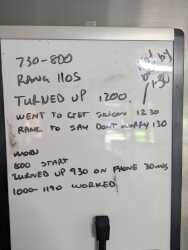 730-800
RANG 110S
TURNED UP 1200
WENT TO GET 1230
RANG TO SAY DONT WORRY 130
by
1:30
MON
800 START
TURNED UP 930 ON PHONE 30MINS
1000-1190 WORKED